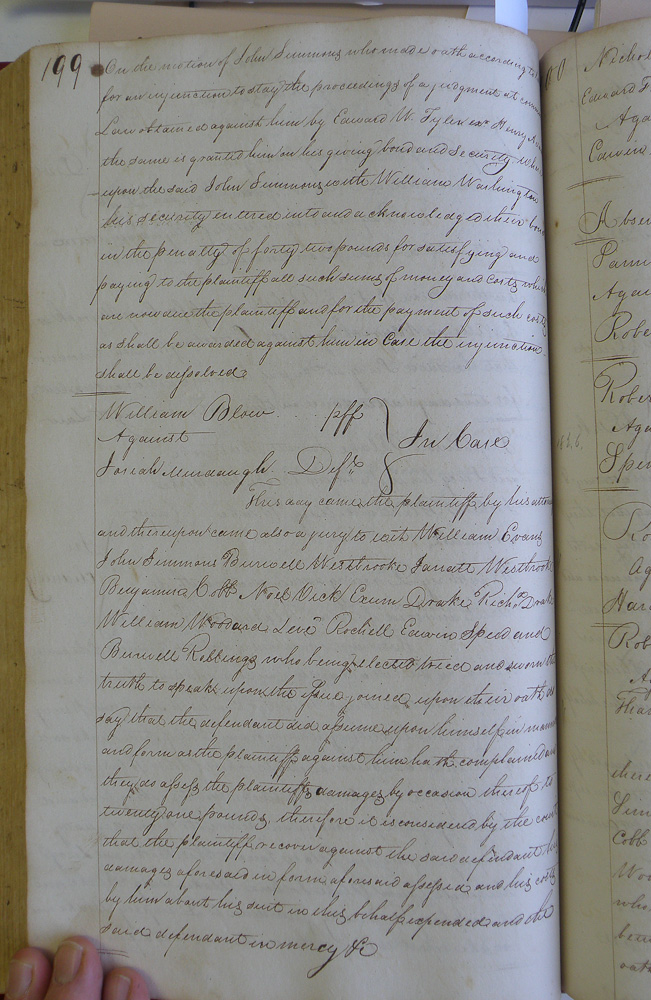 199
On the motion of John Simmons who made oath according to
for an injunction to stay the proceedings of a judgment at common
Law obtained against him by Edward W. Tyler exr. Henry
the same is granted him on his giving bond and security where
upon the said John Simmons with William Washington
his security entred into and acknowledged their bond
in the penalty of forty two pounds for satisfying and
paying to the plaintiff all such sums of money and costs which
are now due the plaintiff and for the payment of such costs
as shall be awarded against him in Case the injunction
shall be dissolved
William Blow pff
Against
In Case
Josiah Murdaugh Deft.
This day came the plaintiff by his attorn
and thereupon came also a jury to wit William Evans
John Simmons Burwell Westbrooke Jarratt Westbrook
Benjamin Cobb Noel Vick Exum Drake Richd. Drake
William Woodard Levi Rochell Edwin Speed and
Burwell Robbings who being elected tried and sworn the
truth to speake upon the issue joined upon their oath do
say that the defendant did assume upon himself in mann
and form as the plaintiff against him hath complained and
they do assess the plaintiffs damages by occasion thereof to
twenty one pounds therefore it is considered by the court
that the plaintiff recover against the said defendant his
damages aforesaid in form aforesaid assessed and his costs
by him about his suit in this behalf expended and the
said defendant in mercy &c
Nichol
Edward T
Aga
Absen
Again
Robe
Rober
Aga
Spen
Ro
Ag
Har
Rob
there
Sim
Cobb
Woo
who
oath